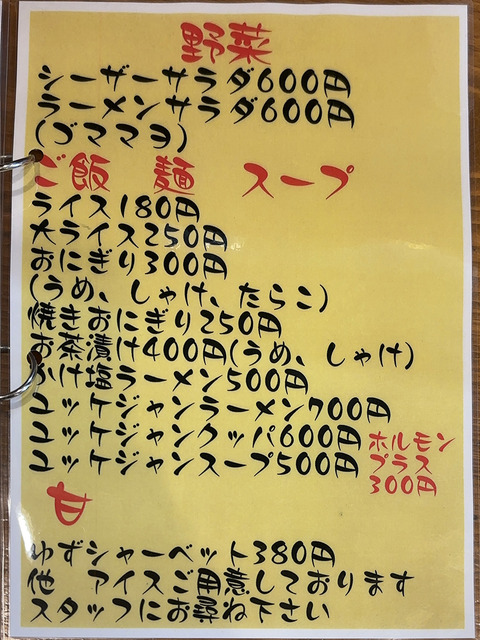 野菜
シーザーサラダ600円
ラーメンサラダ600円
(ゴママヨ)
ご飯 麺 スープ
ライス180円
大ライス250円
おにぎり300円
(うめ、しゃけ、たらこ)
焼きおにぎり250円
お茶漬け400円(うめ、しゃけ)
かけ塩ラーメン500円
ユッケジャンラーメン700円
ユッケジャンクッパ600円
ユッケジャンスープ500円
ホルモン
プラス
300円
甘
ゆずシャーベット380円
他 アイスご用意しております
スタッフにお尋ね下さい